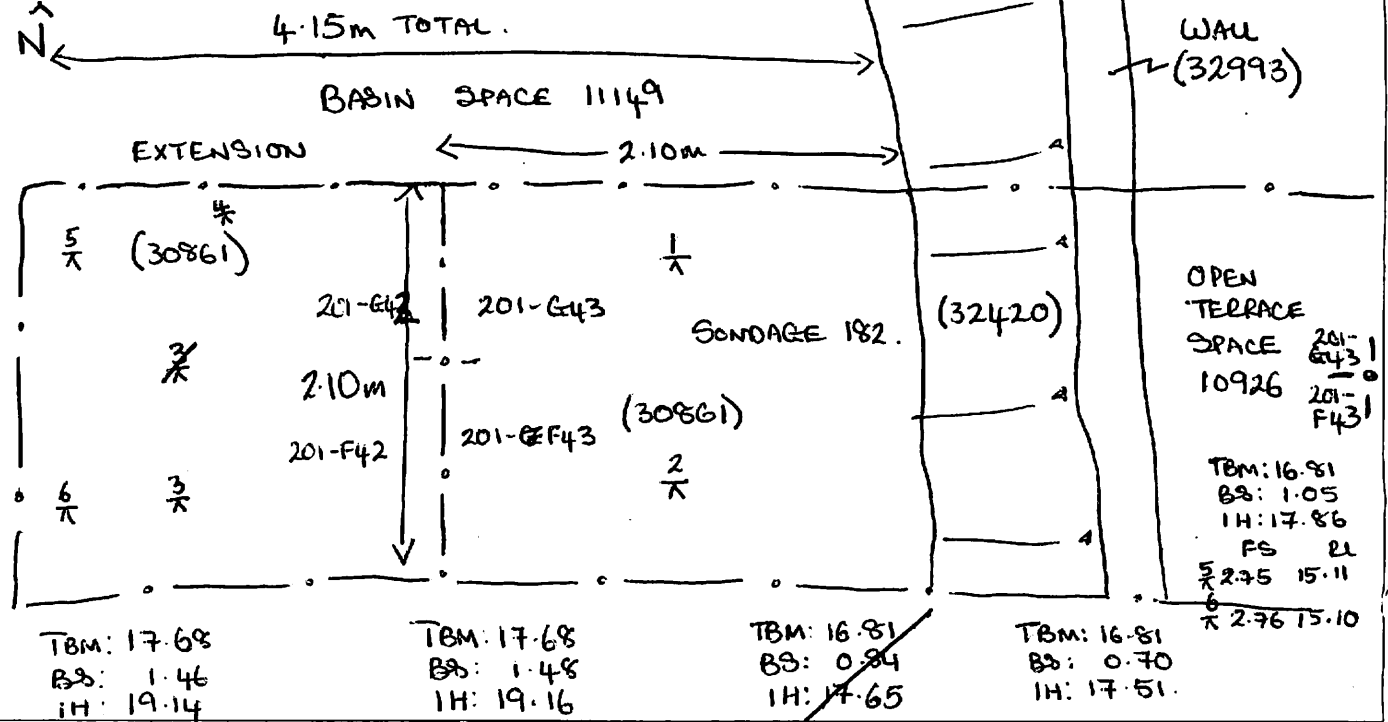 N
4.15m TOTAL.
WALL
(32993)
BASIN SPACE 11149
EXTENSION
2.10m
4
5
(30861)
1
201-G42
201-G43
SONDAGE 182.
(32420)
OPEN
TERRACE
SPACE
10926
201-
G43
201-
F43
3
2.10m
(30861)
201-F42
201-F43
6
3
2
TBM: 16.81
BS: 1.05
IH: 17.86
FS RL
5 2.75 15.11
6 2.76 15.10
TBM: 17.68
BS: 1.46
IH: 19.14
TBM: 17.68
BS: 1.48
IH: 19.16
TBM: 16.81
BS: 0.84
IH: 17.65
TBM: 16.81
BS: 0.70
IH: 17.51.